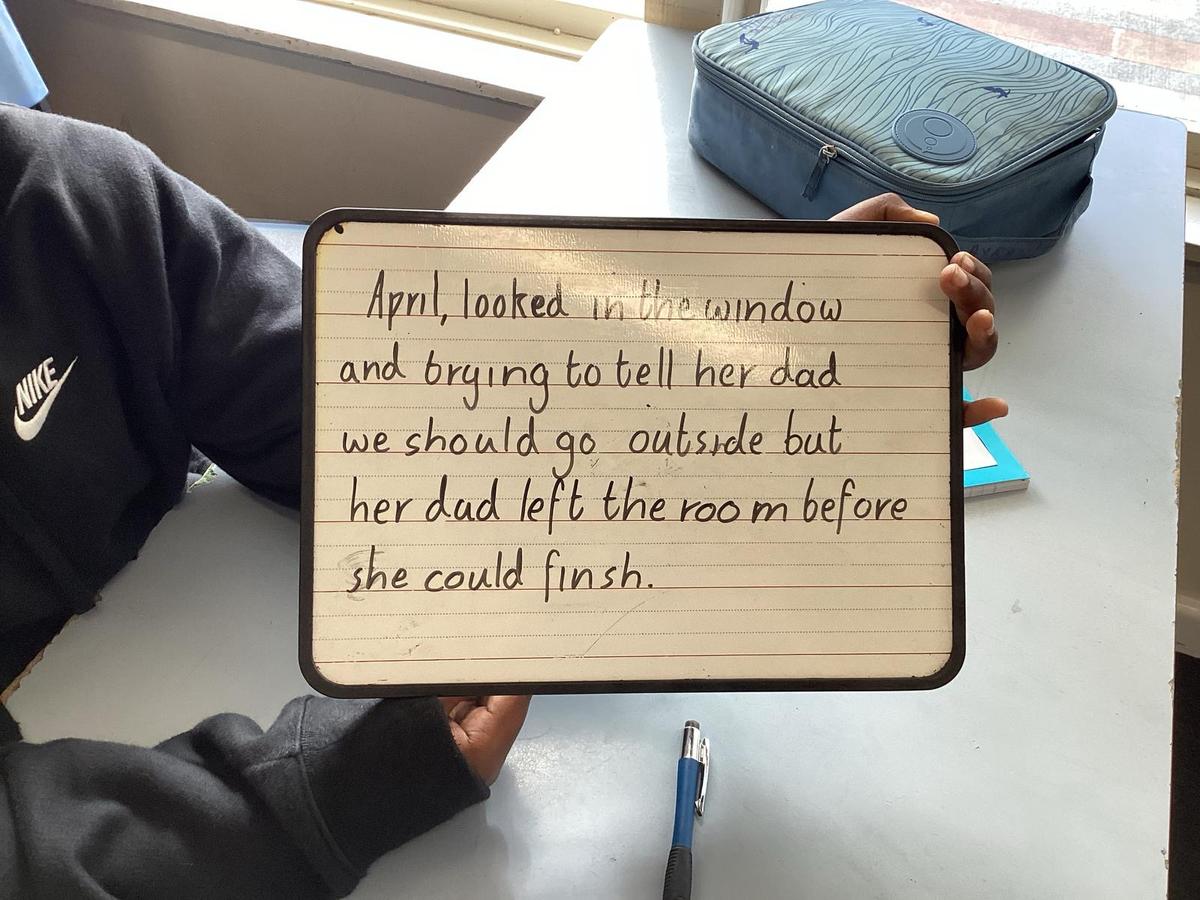 NIKE
April, looked in the window
and trying to tell her dad
we should go outside but
her dad left the room before
she could finsh.